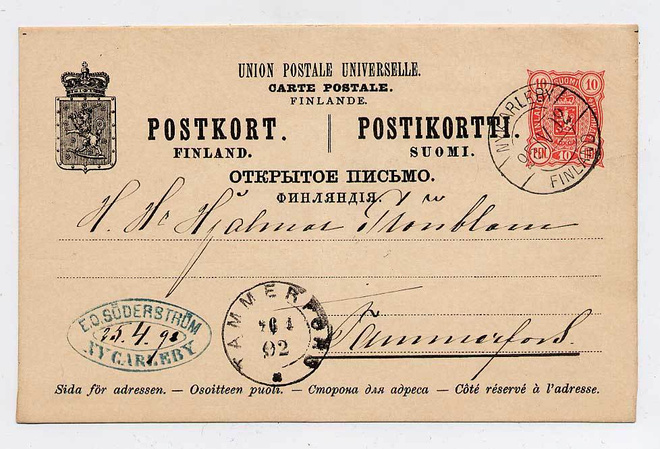 UNION POSTALE UNIVERSELLE.
CARTE POSTALE.
FINLANDE.
POSTKORT. | POSTIKORTTI.
FINLAND. SUOMI.
ОТКРЫТОЕ ПИСЬМО.
ФИНЛЯНДІЯ.
10 SUOMI 10
PEN 10
NYKARLEBY
FINLAND
H. Hr Hjalmar Tionblom
Tammerfors.
TAMMERFORS
92
E.O. SÖDERSTRÖM
25.4.92
NYCARLEBY
Sida för adressen. — Osoitteen puoli. — Сторона для адреса — Côté réservé à l'adresse.